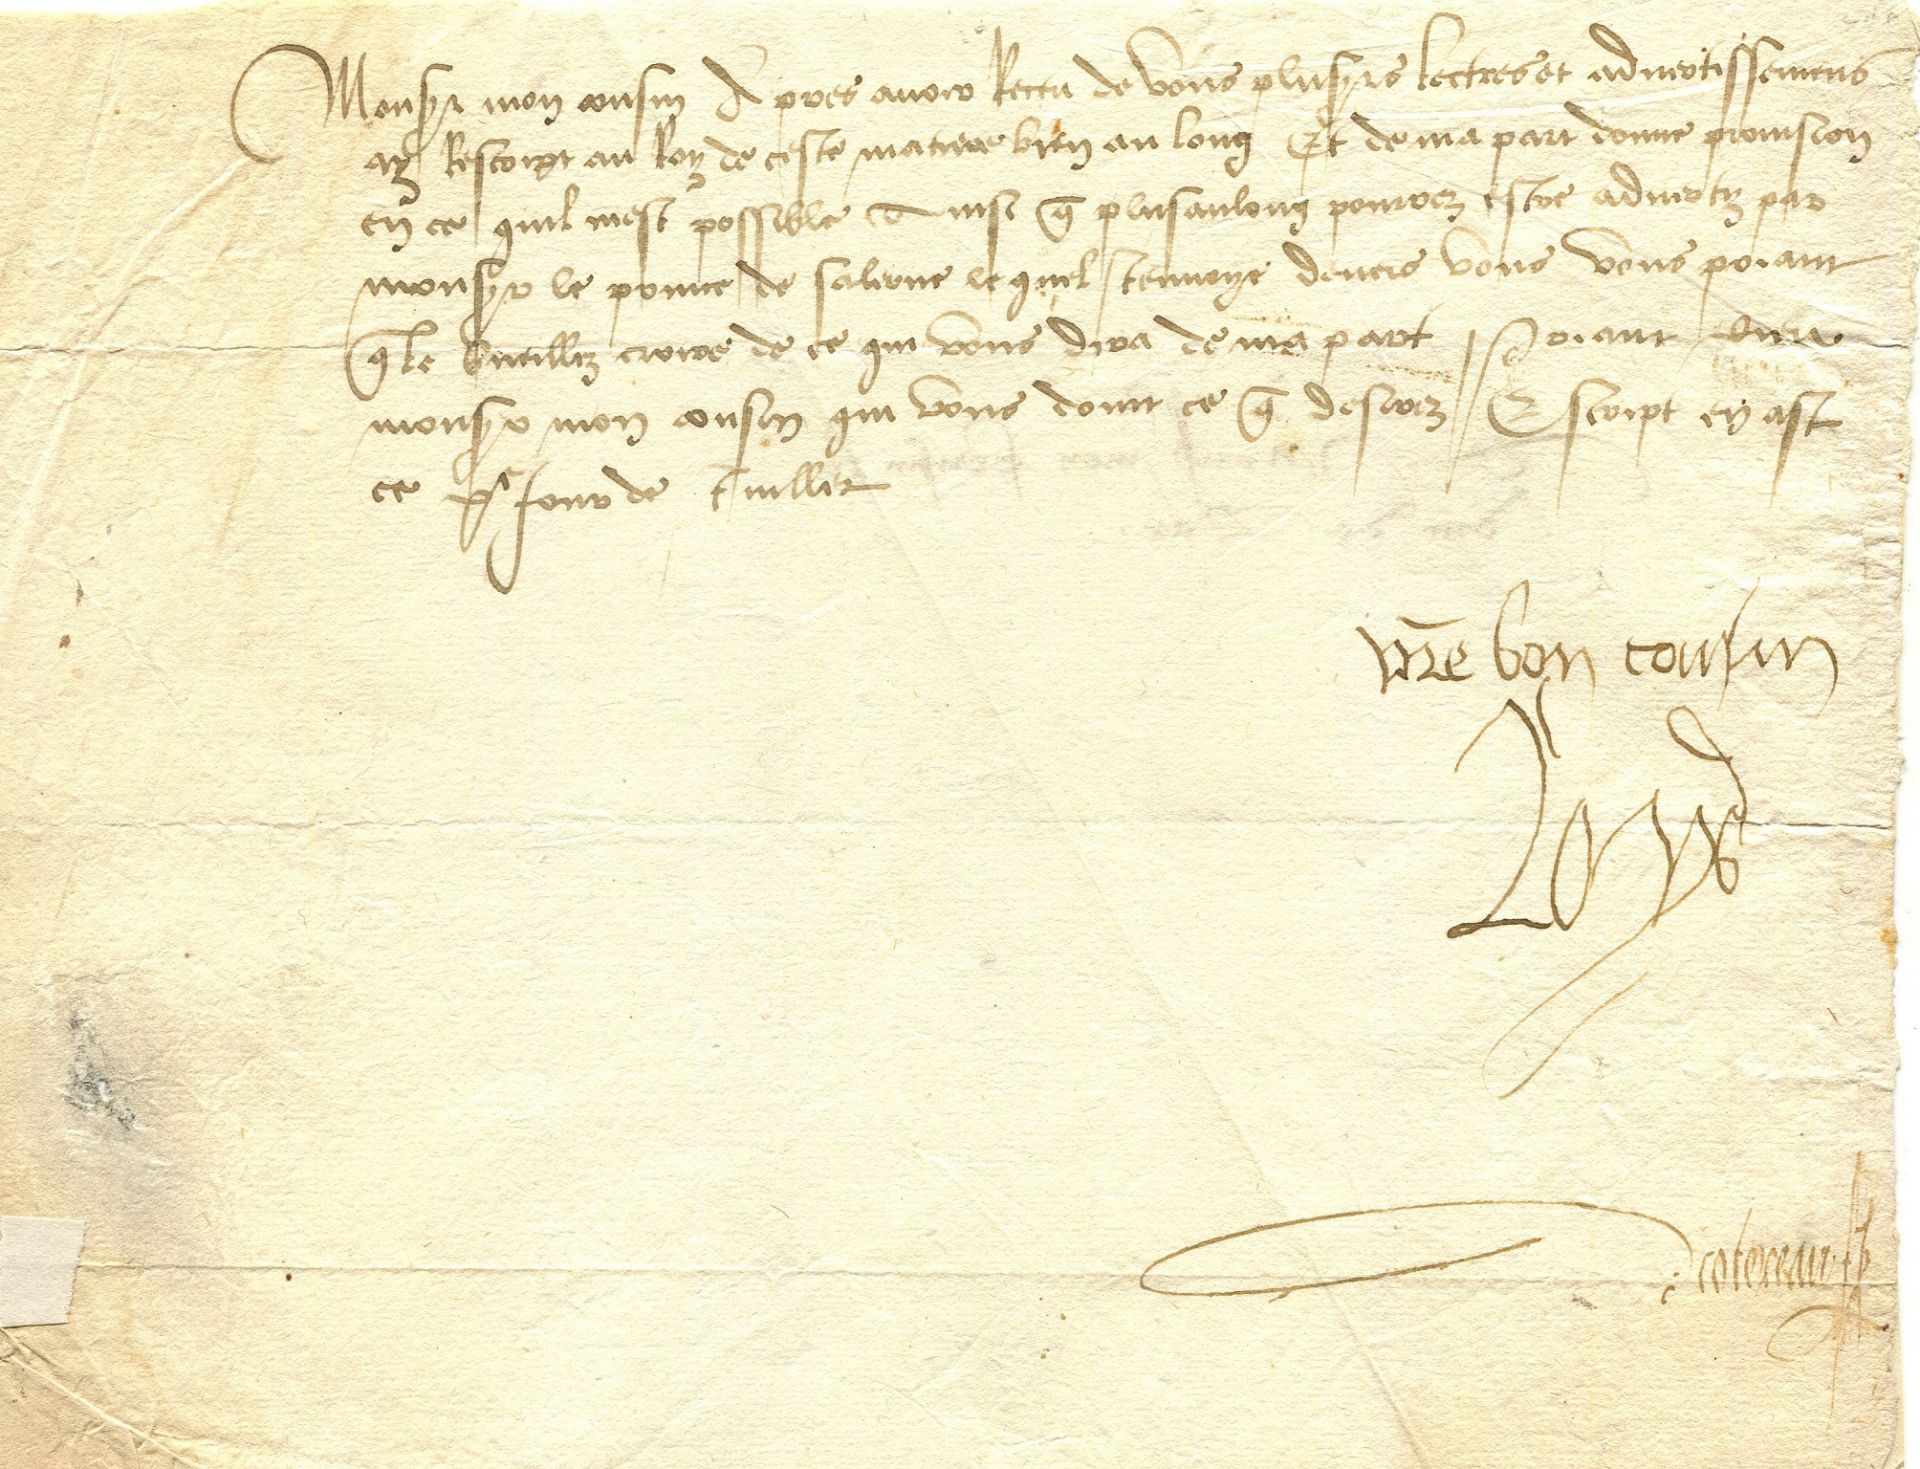 Monsr mon cousin Apres avoir Receu de vous plusrs lectres et advertissemens
ay Rescript au Roy de ceste matiere bien au long Et de ma part donne provision
en ce quil mest possible Ainsi q̃ plus au long pourrez estre adverty par
monsr le prince de salerne lequel Jenvoye devers vous vous priant
q̃ le vueillez croire de ce qui vous dira de ma part Priant dieu
monsr mon cousin qui vous doint ce q̃ desirez Escript en ast
ce jour de Juillet
vr̃e bon cousin
Loys
cotereau